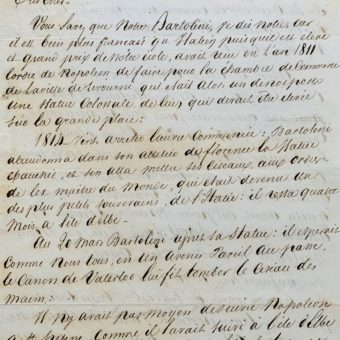 Vous savez que notre Bartolini, je dis notre, car
il est bien plus français qu'Italien puisque est élevé
et grand prix de notre école, avait reçu en l'an 1811
l'ordre de Napoleon de faire pour la chambre de Commerce
de la ville de Livourne qui était alors un de nos ports
une Statue Colossale de lui, qui devait être élevée
sur la grande place:
1814 vint arrêter l'œuvre Commencée: Bartolini
abandonna dans son attelier de florence la Statue
ébauchée, et s'en alla mettre ses ciseaux aux ordres
de son maitre du Monde, qui était devenu un
des plus petits souverains, de l'Italie: il resta quatre
Mois a l'ile d'elbe.
Au 20 Mars Bartolini reprit sa Statue: il espérait
comme Nous tous, en un avenir pareil au passé,
le Canon de Vaterloo lui fit tomber le Ciseau des
mains:
Il n'y avait pas moyen de suivre Napoleon
a Ste Helene Comme il l'avait suivi à l'ile d'elbe